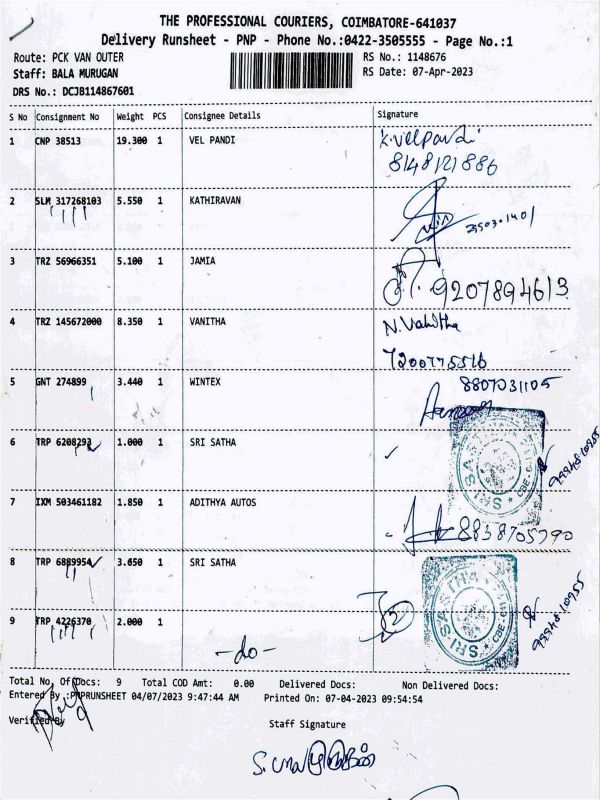 THE PROFESSIONAL COURIERS, COIMBATORE-641037
Delivery Runsheet - PNP - Phone No.:0422-3505555 - Page No.:1
Route: PCK VAN OUTER RS No.: 1148676
Staff: BALA MURUGAN RS Date: 07-Apr-2023
DRS No.: DCJB114867601
S No Consignment No Weight PCS Consignee Details Signature
1 CNP 38513 19.300 1 VEL PANDI K.Velpandi
8148121886
2 SLM 317268103 5.550 1 KATHIRAVAN
3 TRZ 56966351 5.100 1 JAMIA
9207894613
4 TRZ 145672000 8.350 1 VANITHA N.Vanitha
7200775516
5 GNT 274899 3.440 1 WINTEX 8807031105
6 TRP 6208293 1.000 1 SRI SATHA
7 IXM 503461182 1.850 1 ADITHYA AUTOS
8838705790
8 TRP 6889954 3.650 1 SRI SATHA
9 TRP 4226370 2.000 1
-do-
Total No. Of Docs: 9 Total COD Amt: 0.00 Delivered Docs: Non Delivered Docs:
Entered By :PNPRUNSHEET 04/07/2023 9:47:44 AM Printed On: 07-04-2023 09:54:54
Verified By Staff Signature
S. பாலமுருகன்